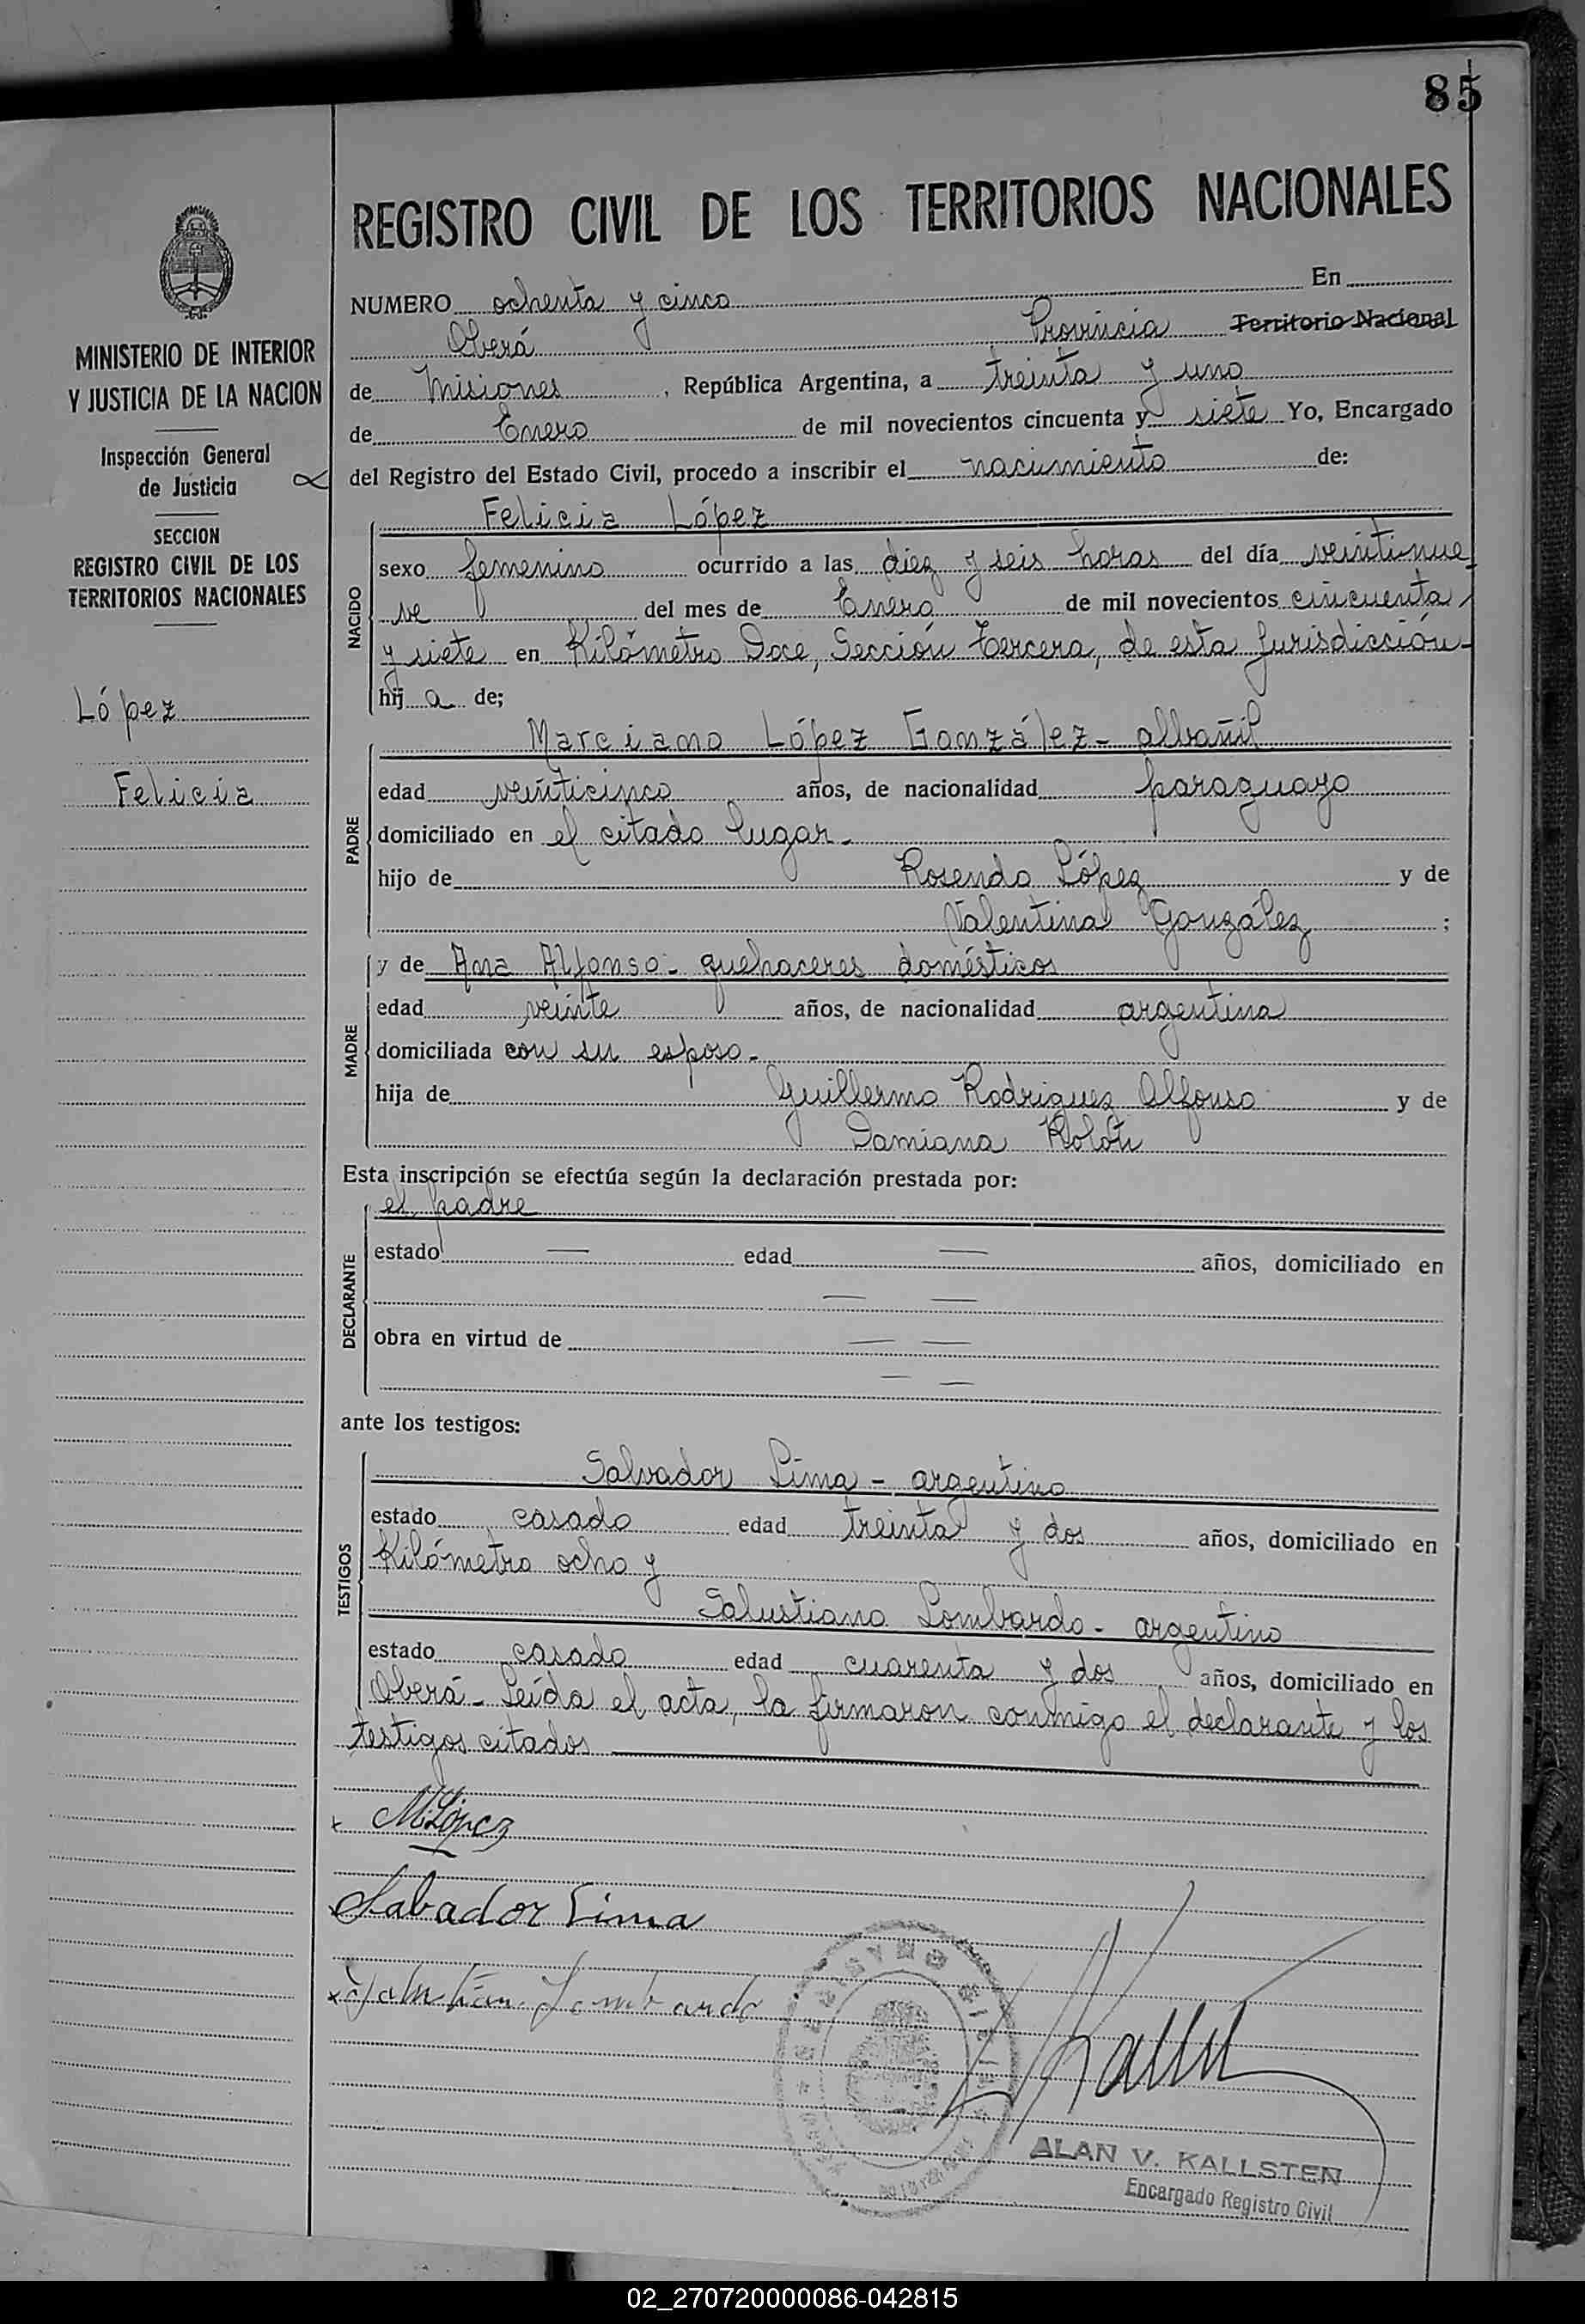 85
REGISTRO CIVIL DE LOS TERRITORIOS NACIONALES
MINISTERIO DE INTERIOR
Y JUSTICIA DE LA NACION
Inspección General
de Justicia
SECCION
REGISTRO CIVIL DE LOS
TERRITORIOS NACIONALES
López
Felicia
NUMERO ochenta y cinco En
Oberá Provincia Territorio Nacional
de Misiones, República Argentina, a treinta y uno
de Enero de mil novecientos cincuenta y siete Yo, Encargado
del Registro del Estado Civil, procedo a inscribir el nacimiento de:
NACIDO
Felicia López
sexo femenino ocurrido a las diez y seis horas del día veintinue
ve del mes de Enero de mil novecientos cincuenta
y siete en Kilómetro Doce, Sección tercera, de esta Jurisdicción-
hij a de;
PADRE
Marciano López González- albañil
edad veinticinco años, de nacionalidad paraguayo
domiciliado en el citado lugar-
hijo de Rosendo López y de
Valentina González ;
MADRE
y de Ana Alfonso- quehaceres domésticos
edad veinte años, de nacionalidad argentina
domiciliada con su esposo-
hija de Guillermo Rodriguez Alfonso y de
Damiana
Esta inscripción se efectúa según la declaración prestada por:
DECLARANTE
el padre
estado — edad — años, domiciliado en
— —
obra en virtud de — —
— —
ante los testigos:
TESTIGOS
Salvador Lima - argentino
estado casado edad treinta y dos años, domiciliado en
Kilómetro ocho y
Salustiano Lombardo- argentino
estado casado edad cuarenta y dos años, domiciliado en
Oberá- Leída el acta, la firmaron conmigo el declarante y los
testigos citados
M. López
Sabador Lima
Lombardo
ALAN V. KALLSTEN
Encargado Registro Civil
02_270720000086-042815